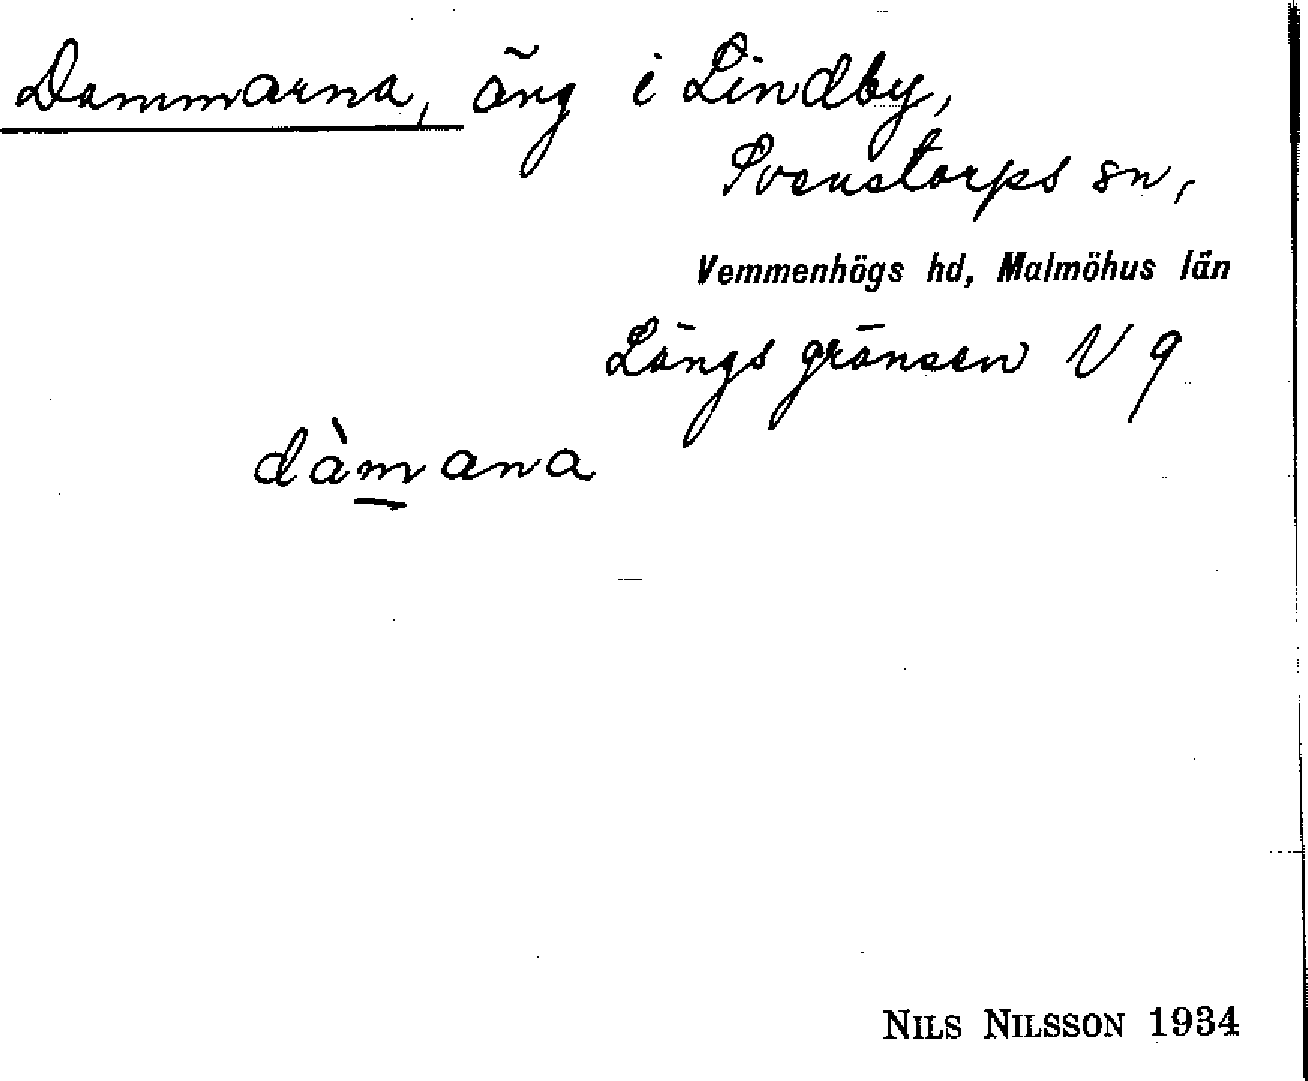 Dammarna, äng i Lindby,
Svenstorps sn,
Vemmenhögs hd, Malmöhus län
Längs gränsen V 9
dàmana
NILS NILSSON 1934